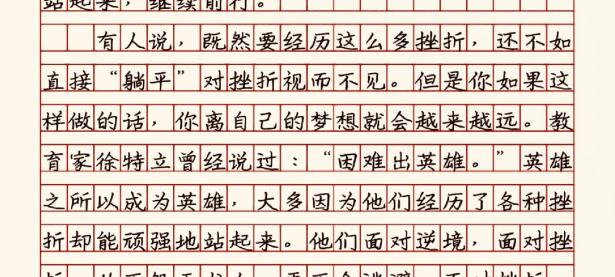 站起来，继续前行。
有人说，既然要经历这么多挫折，还不如
直接“躺平”对挫折视而不见。但是你如果这
样做的话，你离自己的梦想就会越来越远。教
育家徐特立曾经说过：“困难出英雄。”英雄
之所以成为英雄，大多因为他们经历了各种挫
折却能顽强地站起来。他们面对逆境，面对挫